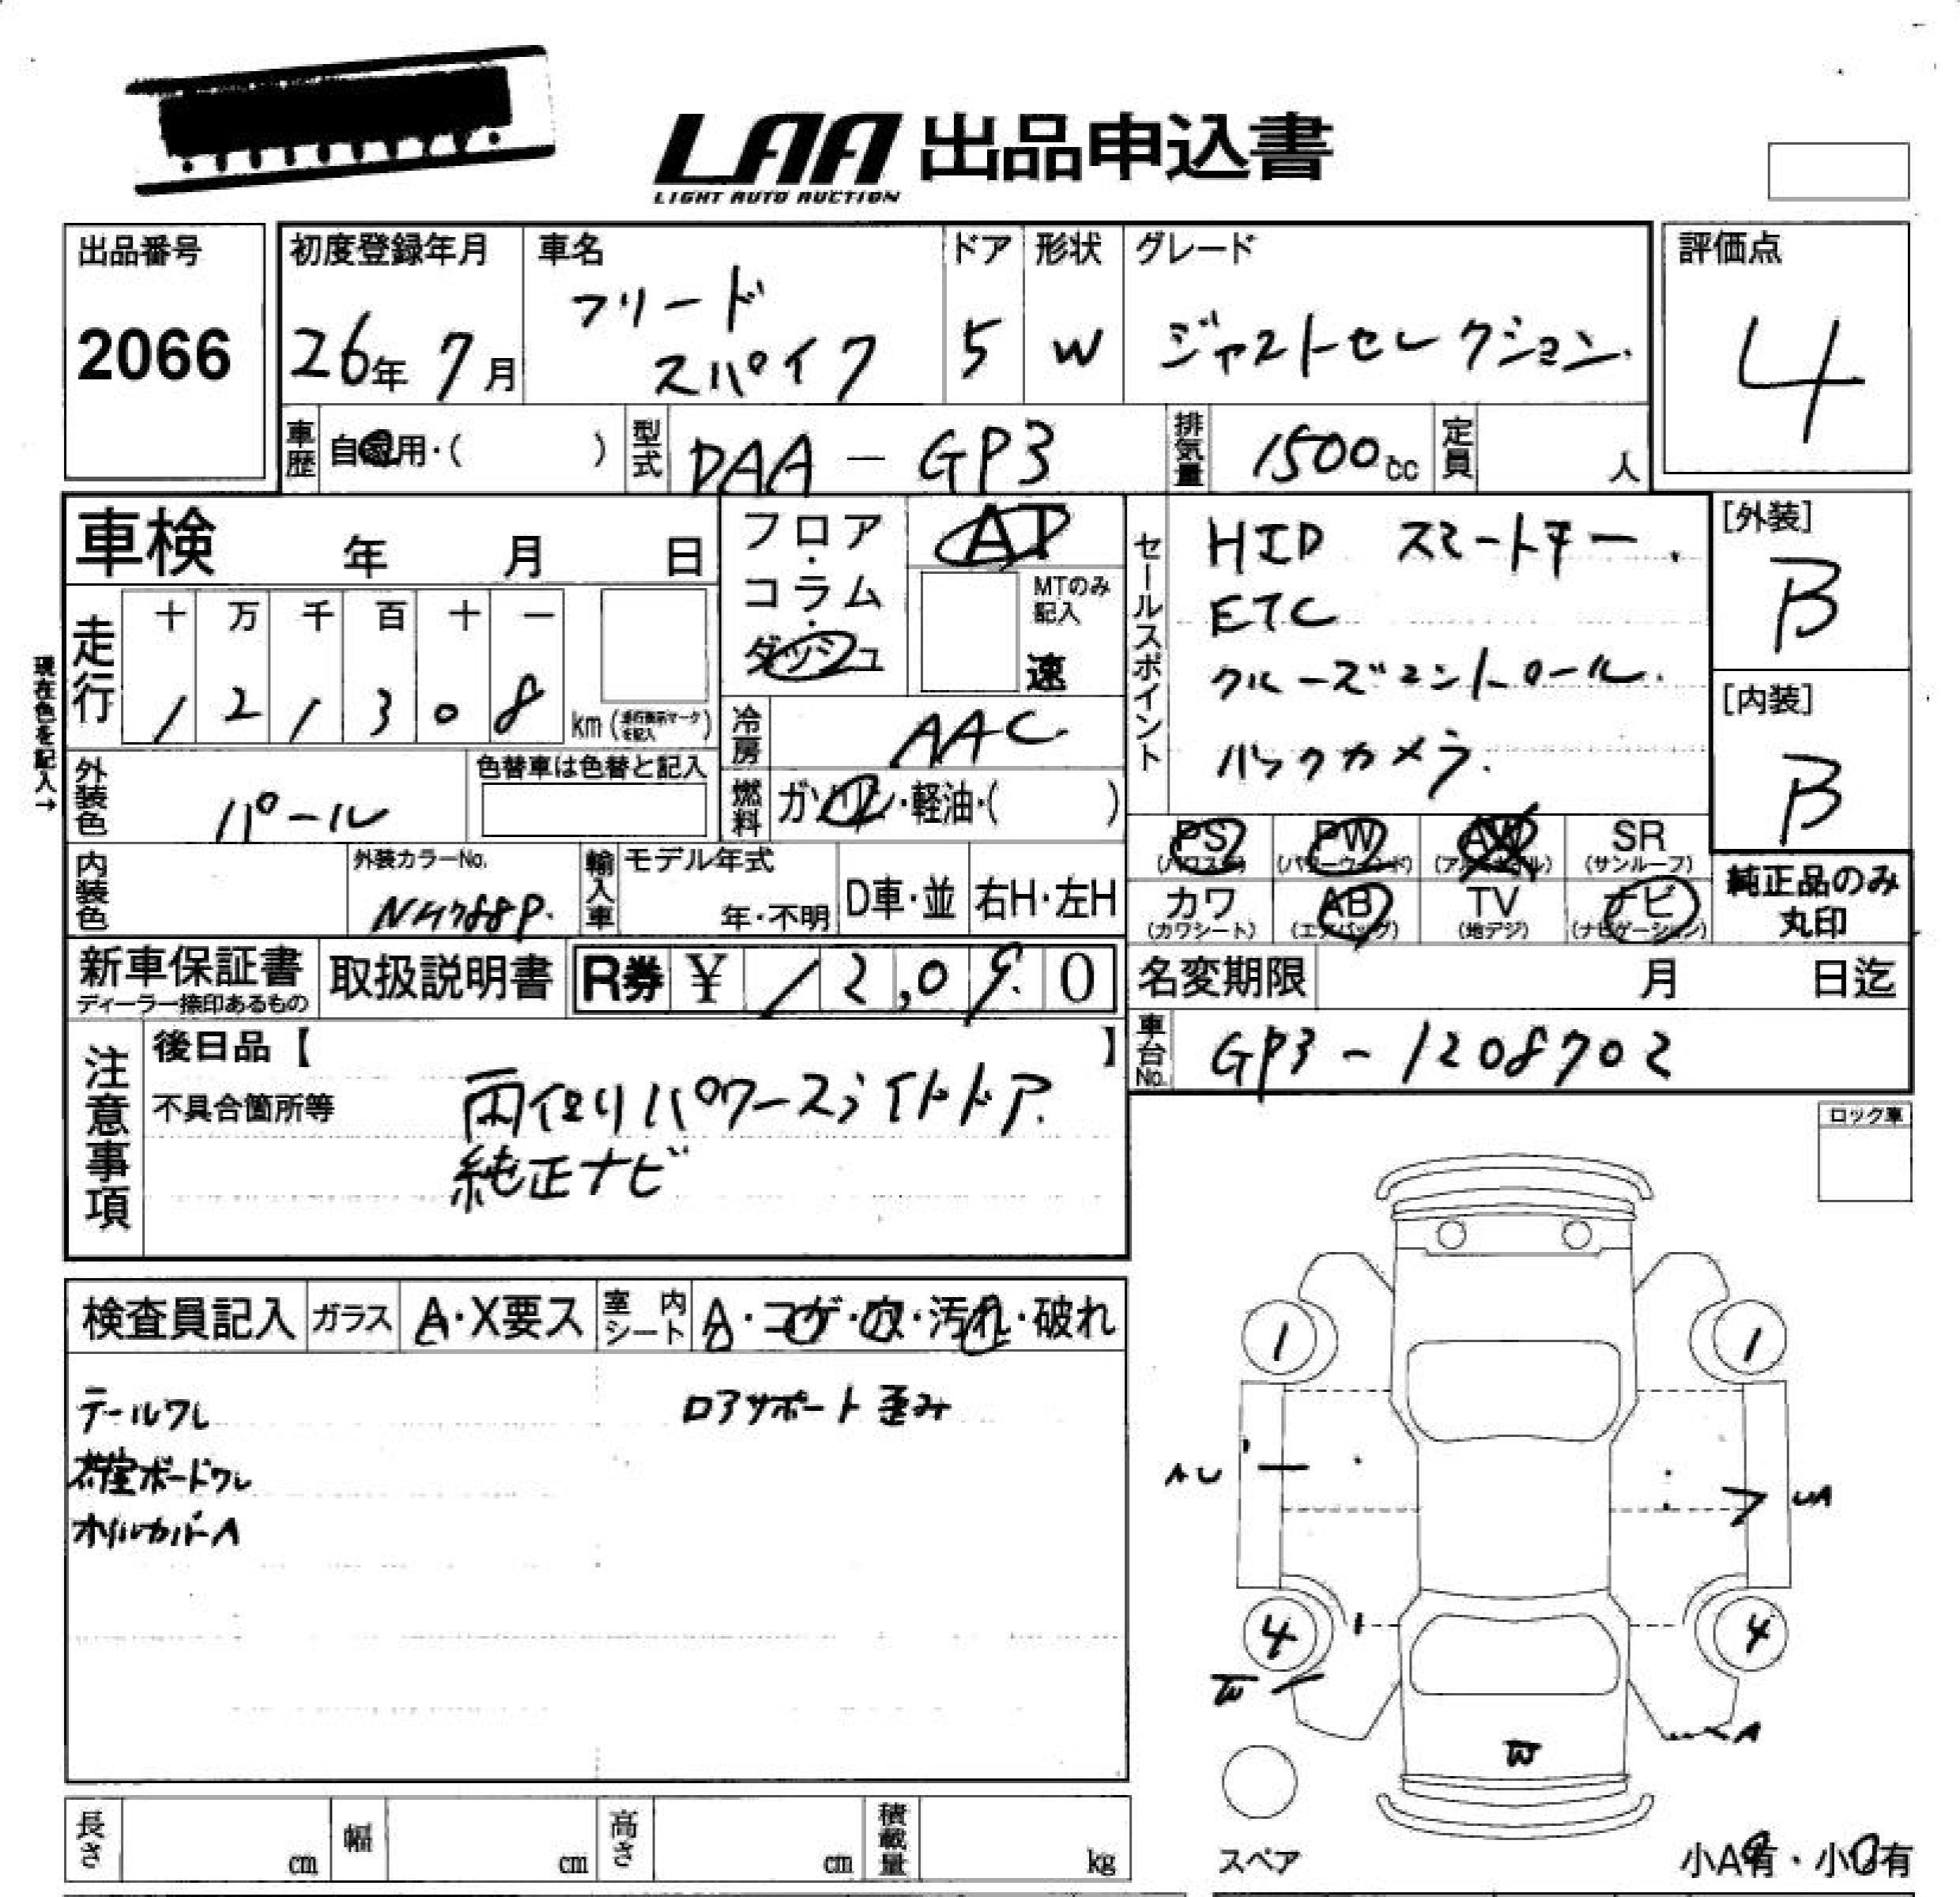 LAA 出品申込書
LIGHT AUTO AUCTION
出品番号
2066
初度登録年月
26年 7月
車名
フリード
スパイク
ドア
5
形状
W
グレード
ジャストセレクション.
評価点
4
車歴
自家用・( )
型式
DAA-GP3
排気量
1500cc
定員
人
車検 年 月 日
フロア・コラム・ダッシュ
AT
MTのみ記入
速
セールスポイント
HID スマートキー.
ETC
クルーズコントロール.
バックカメラ.
[外装]
B
[内装]
B
現在色を記入→
走行
十 万 千 百 十 一
1 2 1 3 0 8
km (走行表示マークを記入)
冷房
AAC
燃料
ガソリン・軽油・( )
外装色
パール
色替車は色替と記入
内装色
外装カラーNo.
NH788P.
輸入車
モデル年式
年・不明
D車・並
右H・左H
PS PW AW SR
(パワステ) (パワーウィンド) (アルミホイール) (サンルーフ)
カワ AB TV ナビ
(カワシート) (エアバッグ) (地デジ) (ナビゲーション)
純正品のみ
丸印
新車保証書
ディーラー捺印あるもの
取扱説明書
R券 ¥ 12,090
名変期限 月 日迄
車台No.
GP3-1208702
注意事項
後日品【 】
不具合箇所等
両側パワースライドドア.
純正ナビ
ロック車
検査員記入
ガラス
A・X要ス
室内シート
A・コゲ・穴・汚れ・破れ
テールワレ
ロアサポート歪み
荷室ボードワレ
オイルカバーA
1 1
AU
UA
4 4
W
A
W
スペア
小A有・小U有
長さ cm
幅 cm
高さ cm
積載量 kg